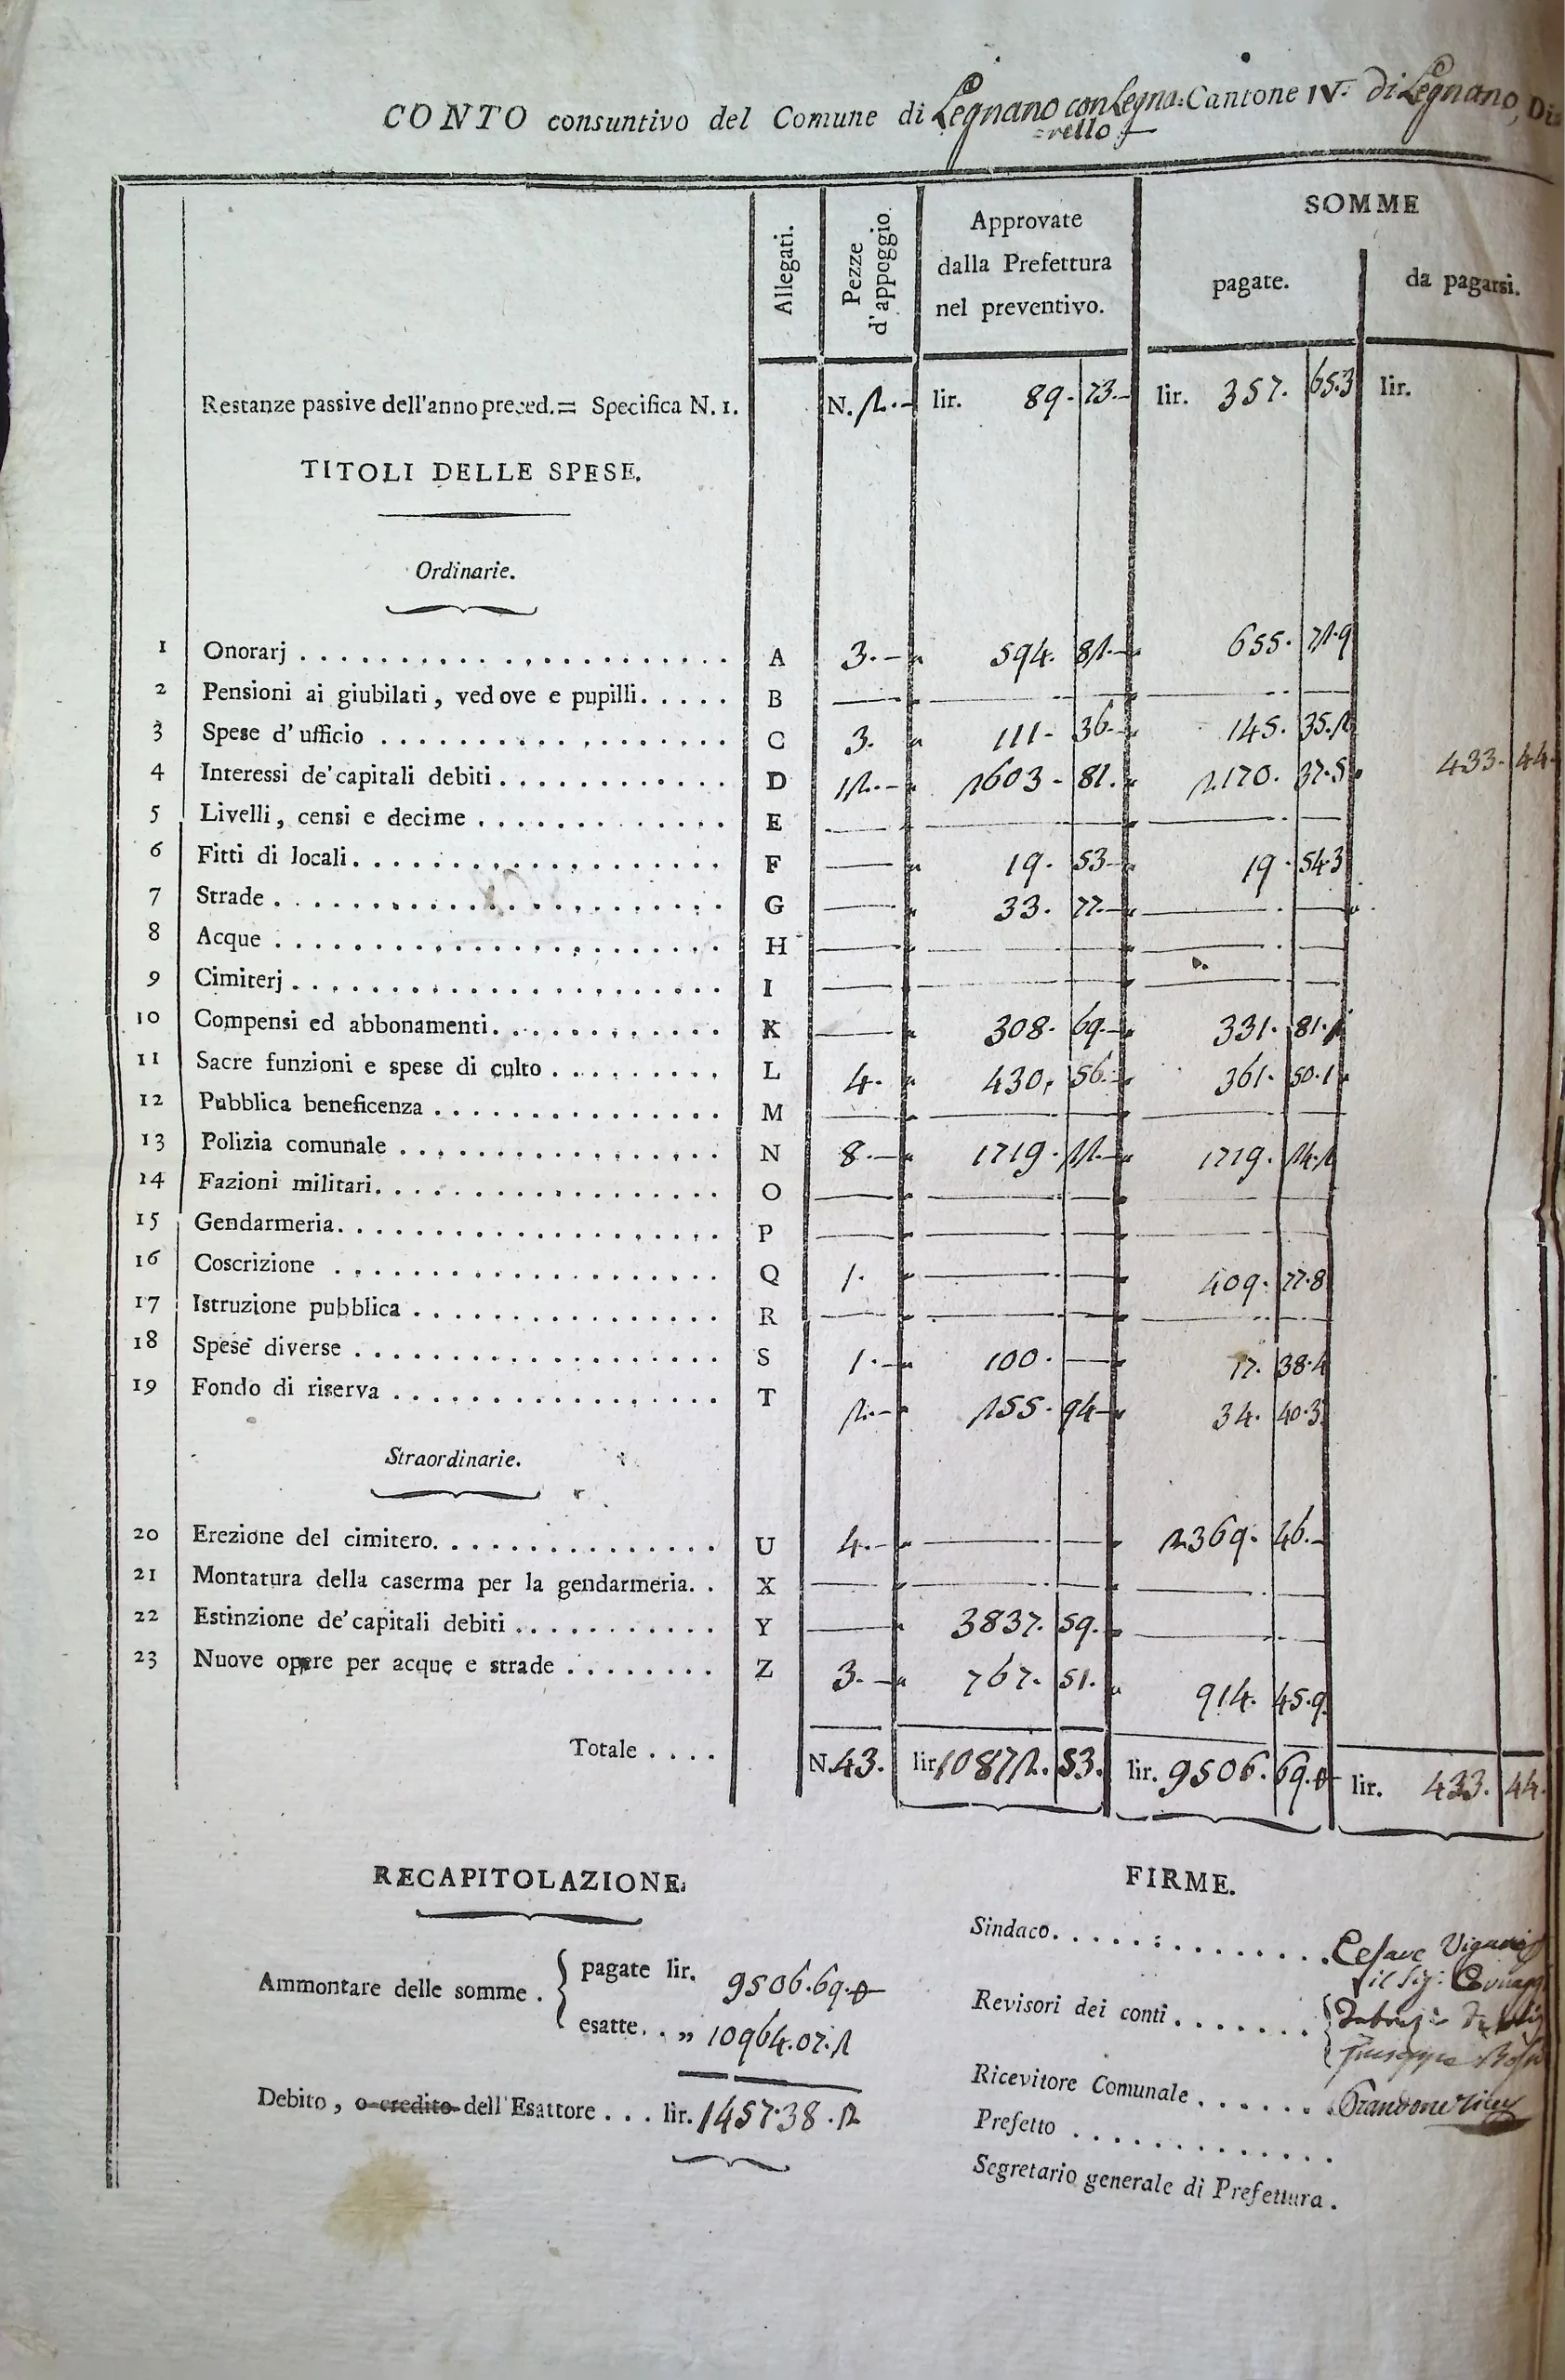 CONTO consuntivo del Comune di Legnano con Legna= Cantone IV. di Legnano, Di
=rello
Allegati.
Pezze d'appoggio.
Approvate dalla Prefettura nel preventivo.
SOMME
pagate.
da pagarsi.
Restanze passive dell'anno preced. = Specifica N. 1. N. 2.- lir. 89. 73.- lir. 357. 65.3 lir.
TITOLI DELLE SPESE.
Ordinarie.
1 Onorarj . . . . A 3.- 594. 82.- 655. 72.9
2 Pensioni ai giubilati, vedove e pupilli. . . . . B
3 Spese d'ufficio . . . . C 3. 111- 36.- 145. 35.2
4 Interessi de'capitali debiti . . . . D 12.- 2603- 81. 2.170. 37.5 433. 44.
5 Livelli, censi e decime . . . . E
6 Fitti di locali. . . . F 19. 53- 19. 54.3
7 Strade . . . . G 33. 77.-
8 Acque . . . . H
9 Cimiterj . . . . I
10 Compensi ed abbonamenti. . . . K 308. 69- 331. 81.2
11 Sacre funzioni e spese di culto . . . . L 4. 430. 56.- 361. 50.1
12 Pubblica beneficenza . . . . M
13 Polizia comunale . . . . N 8.- 1719. 22.- 1719. 24.2
14 Fazioni militari. . . . O
15 Gendarmeria. . . . P
16 Coscrizione . . . . Q 1. 409. 77.8
17 Istruzione pubblica . . . . R
18 Spese diverse . . . . S 1.- 100. — 17. 38.4
19 Fondo di riserva . . . . T 2.- 255. 94- 34. 40.3
Straordinarie.
20 Erezione del cimitero. . . . U 4.- 2369. 46.-
21 Montatura della caserma per la gendarmeria. . X
22 Estinzione de'capitali debiti . . . . Y 3837. 59.
23 Nuove opere per acque e strade . . . . Z 3.- 767. 51. 914. 45.9
Totale . . . . N.43. lir. 10872. 53. lir. 9506. 69.0 lir. 433. 44.
RECAPITOLAZIONE.
Ammontare delle somme . { pagate lir. 9506.69.0
esatte. . „ 10964.07.2
Debito, o credito dell'Esattore . . . lir. 1457.38.2
FIRME.
Sindaco. . . . Cesare
Revisori dei conti . . . .
Giuseppe
Ricevitore Comunale . . . .
Prefetto . . . .
Segretario generale di Prefettura .